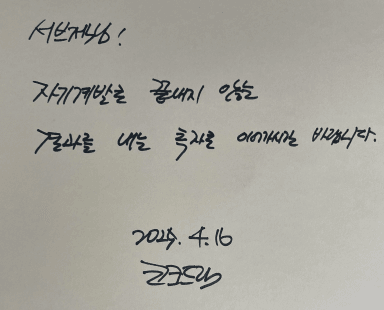 서브저님!
자기계발로 끝내지 않는
결과를 내는 독자로 이어가시길 바랍니다.
4.16